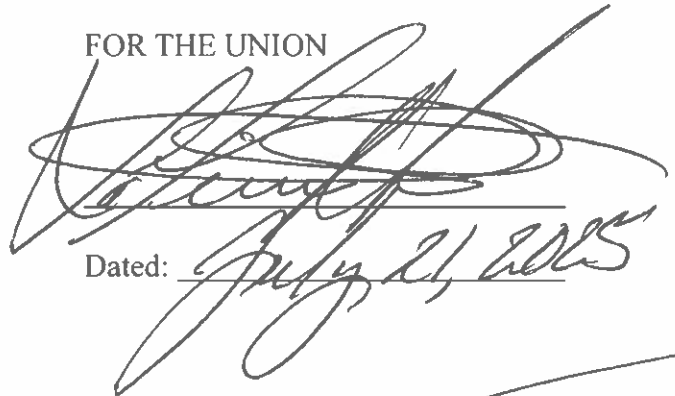 FOR THE UNION
Dated: July 21, 2025